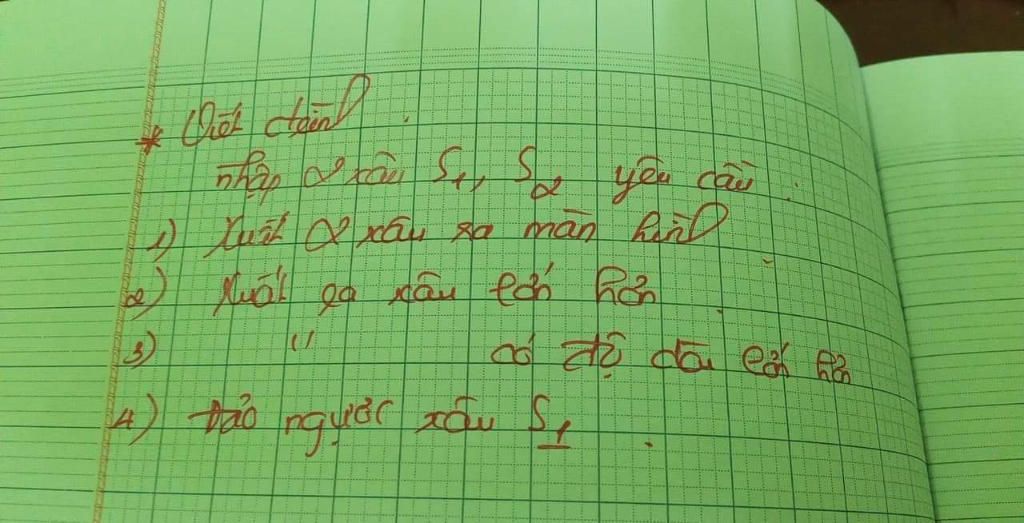 * Viết ctrình
nhập 2 xâu S1, S2 yêu cầu :
1) Xuất 2 xâu ra màn hình
2) Xuất ra xâu lớn hơn.
3) " có độ dài lớn hơn
4) Đảo ngược xâu S1.